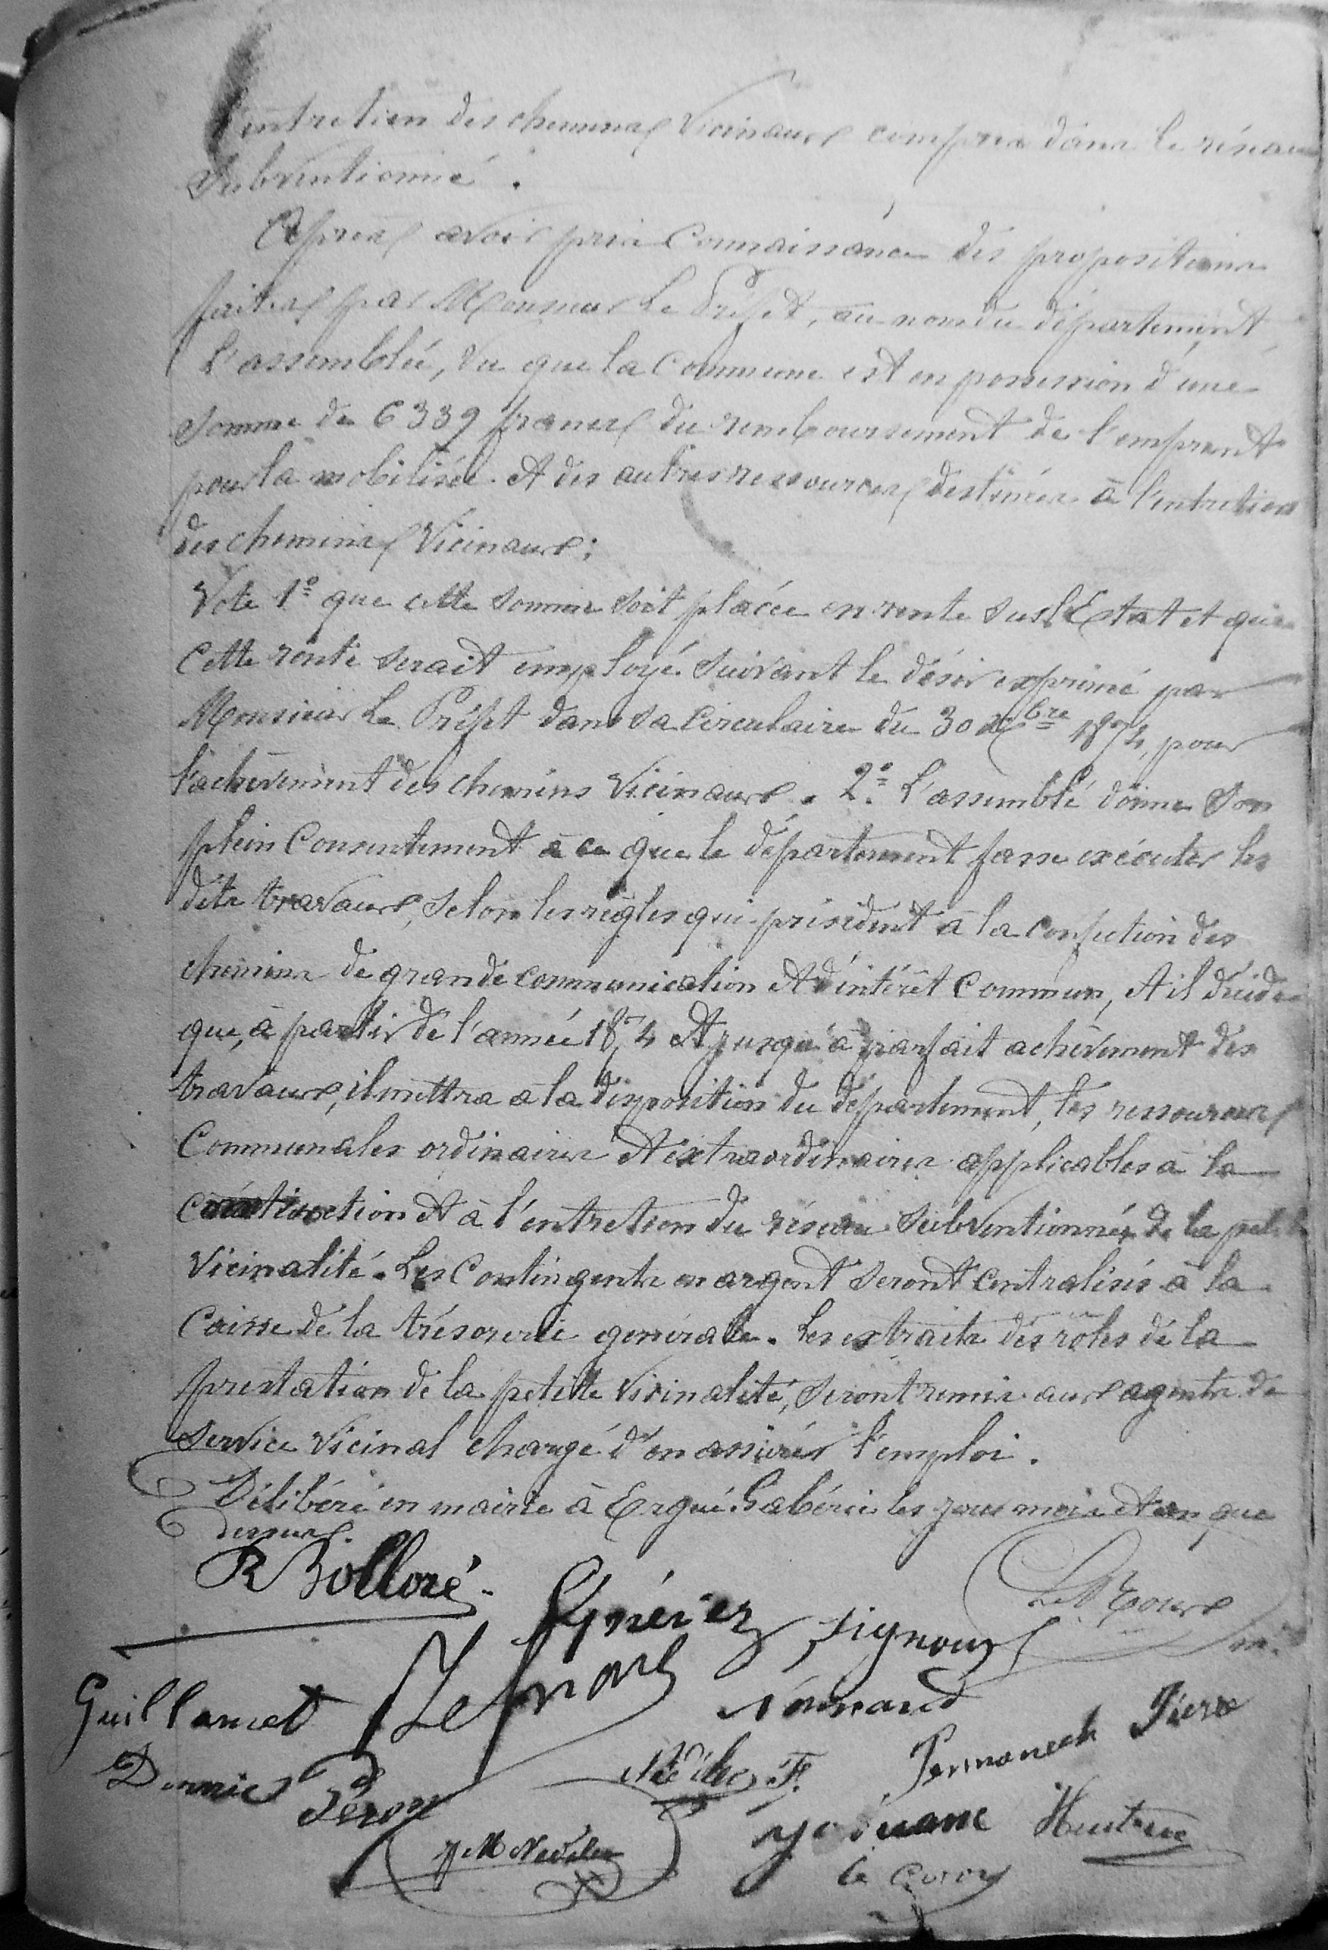 l'entretien des chemins vicinaux compris dans le réseau
subventionné.
Après avoir pris connaissance des propositions
faites par Monsieur Le Préfet, au nom du département,
L'assemblée, vu que la Commune est en possession d'une
somme de 6339 francs du remboursement de l'emprunt
pour la mobilisée et des autres ressources destinées à l'entretien
des chemins Vicinaux;
Vote 1° que cette somme soit placée en rente sur l'Etat et que
cette rente serait employé suivant le désir exprimé par
Monsieur Le Préfet dans sa circulaire du 30 Xbre 1874, pour
l'achèvement des chemins Vicinaux. 2° L'assemblé donne son
plein Consentement à ce que le département fasse exécuter les
dits travaux, selon les règles qui président à la confection des
chemins de grande communication et d'intérêt Commun, et il décide
que, à partir de l'année 1874 et jusqu'à parfait achèvement des
travaux, il mettra à la disposition du département, les ressources
Communales ordinaires et extraordinaires applicables à la
construction et à l'entretion du réseau subventionnés de la petite
Vicinalité. Les Contingents en argent seront centralisés à la
Caisse de la trésorerie générale. Les extraits des rôles de la
prestation de la petitte Vicinalité, seront remis aux agents de
service vicinal chargé d'en assurer l'emploi.
Délibéré en mairie à Ergué-Gabéric les jour mois et an que
dessus.
R Bolloré
Le Roux
Signour
Guillamet
Lesnard
Nédélec F.
Permanech Pierre
Péron
J M Nédélec